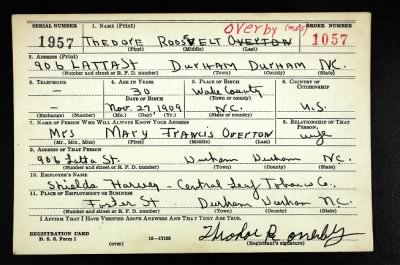 SERIAL NUMBER 1. NAME (Print) Overby (mas) ORDER NUMBER
1957 THEODORE ROOSEVELT OVERTON 1057
(First) (Middle) (Last)
2. ADDRESS (Print)
906 LATTA St DURHAM DURHAM N.C.
(Number and street or R. F. D. number) (Town) (County) (State)
3. TELEPHONE 4. AGE IN YEARS 5. PLACE OF BIRTH 6. COUNTRY OF CITIZENSHIP
— 30 Wake County
DATE OF BIRTH (Town or county)
— Nov. 27, 1909 N.C. U.S.
(Exchange) (Number) (Mo.) (Day) (Yr.) (State or country)
7. NAME OF PERSON WHO WILL ALWAYS KNOW YOUR ADDRESS 8. RELATIONSHIP OF THAT PERSON
Mrs Mary Francis Overton wife
(Mr., Mrs., Miss) (First) (Middle) (Last)
9. ADDRESS OF THAT PERSON
906 Latta St. Durham Durham N.C.
(Number and street or R. F. D. number) (Town) (County) (State)
10. EMPLOYER'S NAME
Shields Harvey - Central Leaf Tobacco Co.
11. PLACE OF EMPLOYMENT OR BUSINESS
Foster St Durham Durham N.C.
(Number and street or R. F. D. number) (Town) (County) (State)
I AFFIRM THAT I HAVE VERIFIED ABOVE ANSWERS AND THAT THEY ARE TRUE.
REGISTRATION CARD
D. S. S. Form 1 (over) 16—17105 Theodore R Overby
(Registrant's signature)